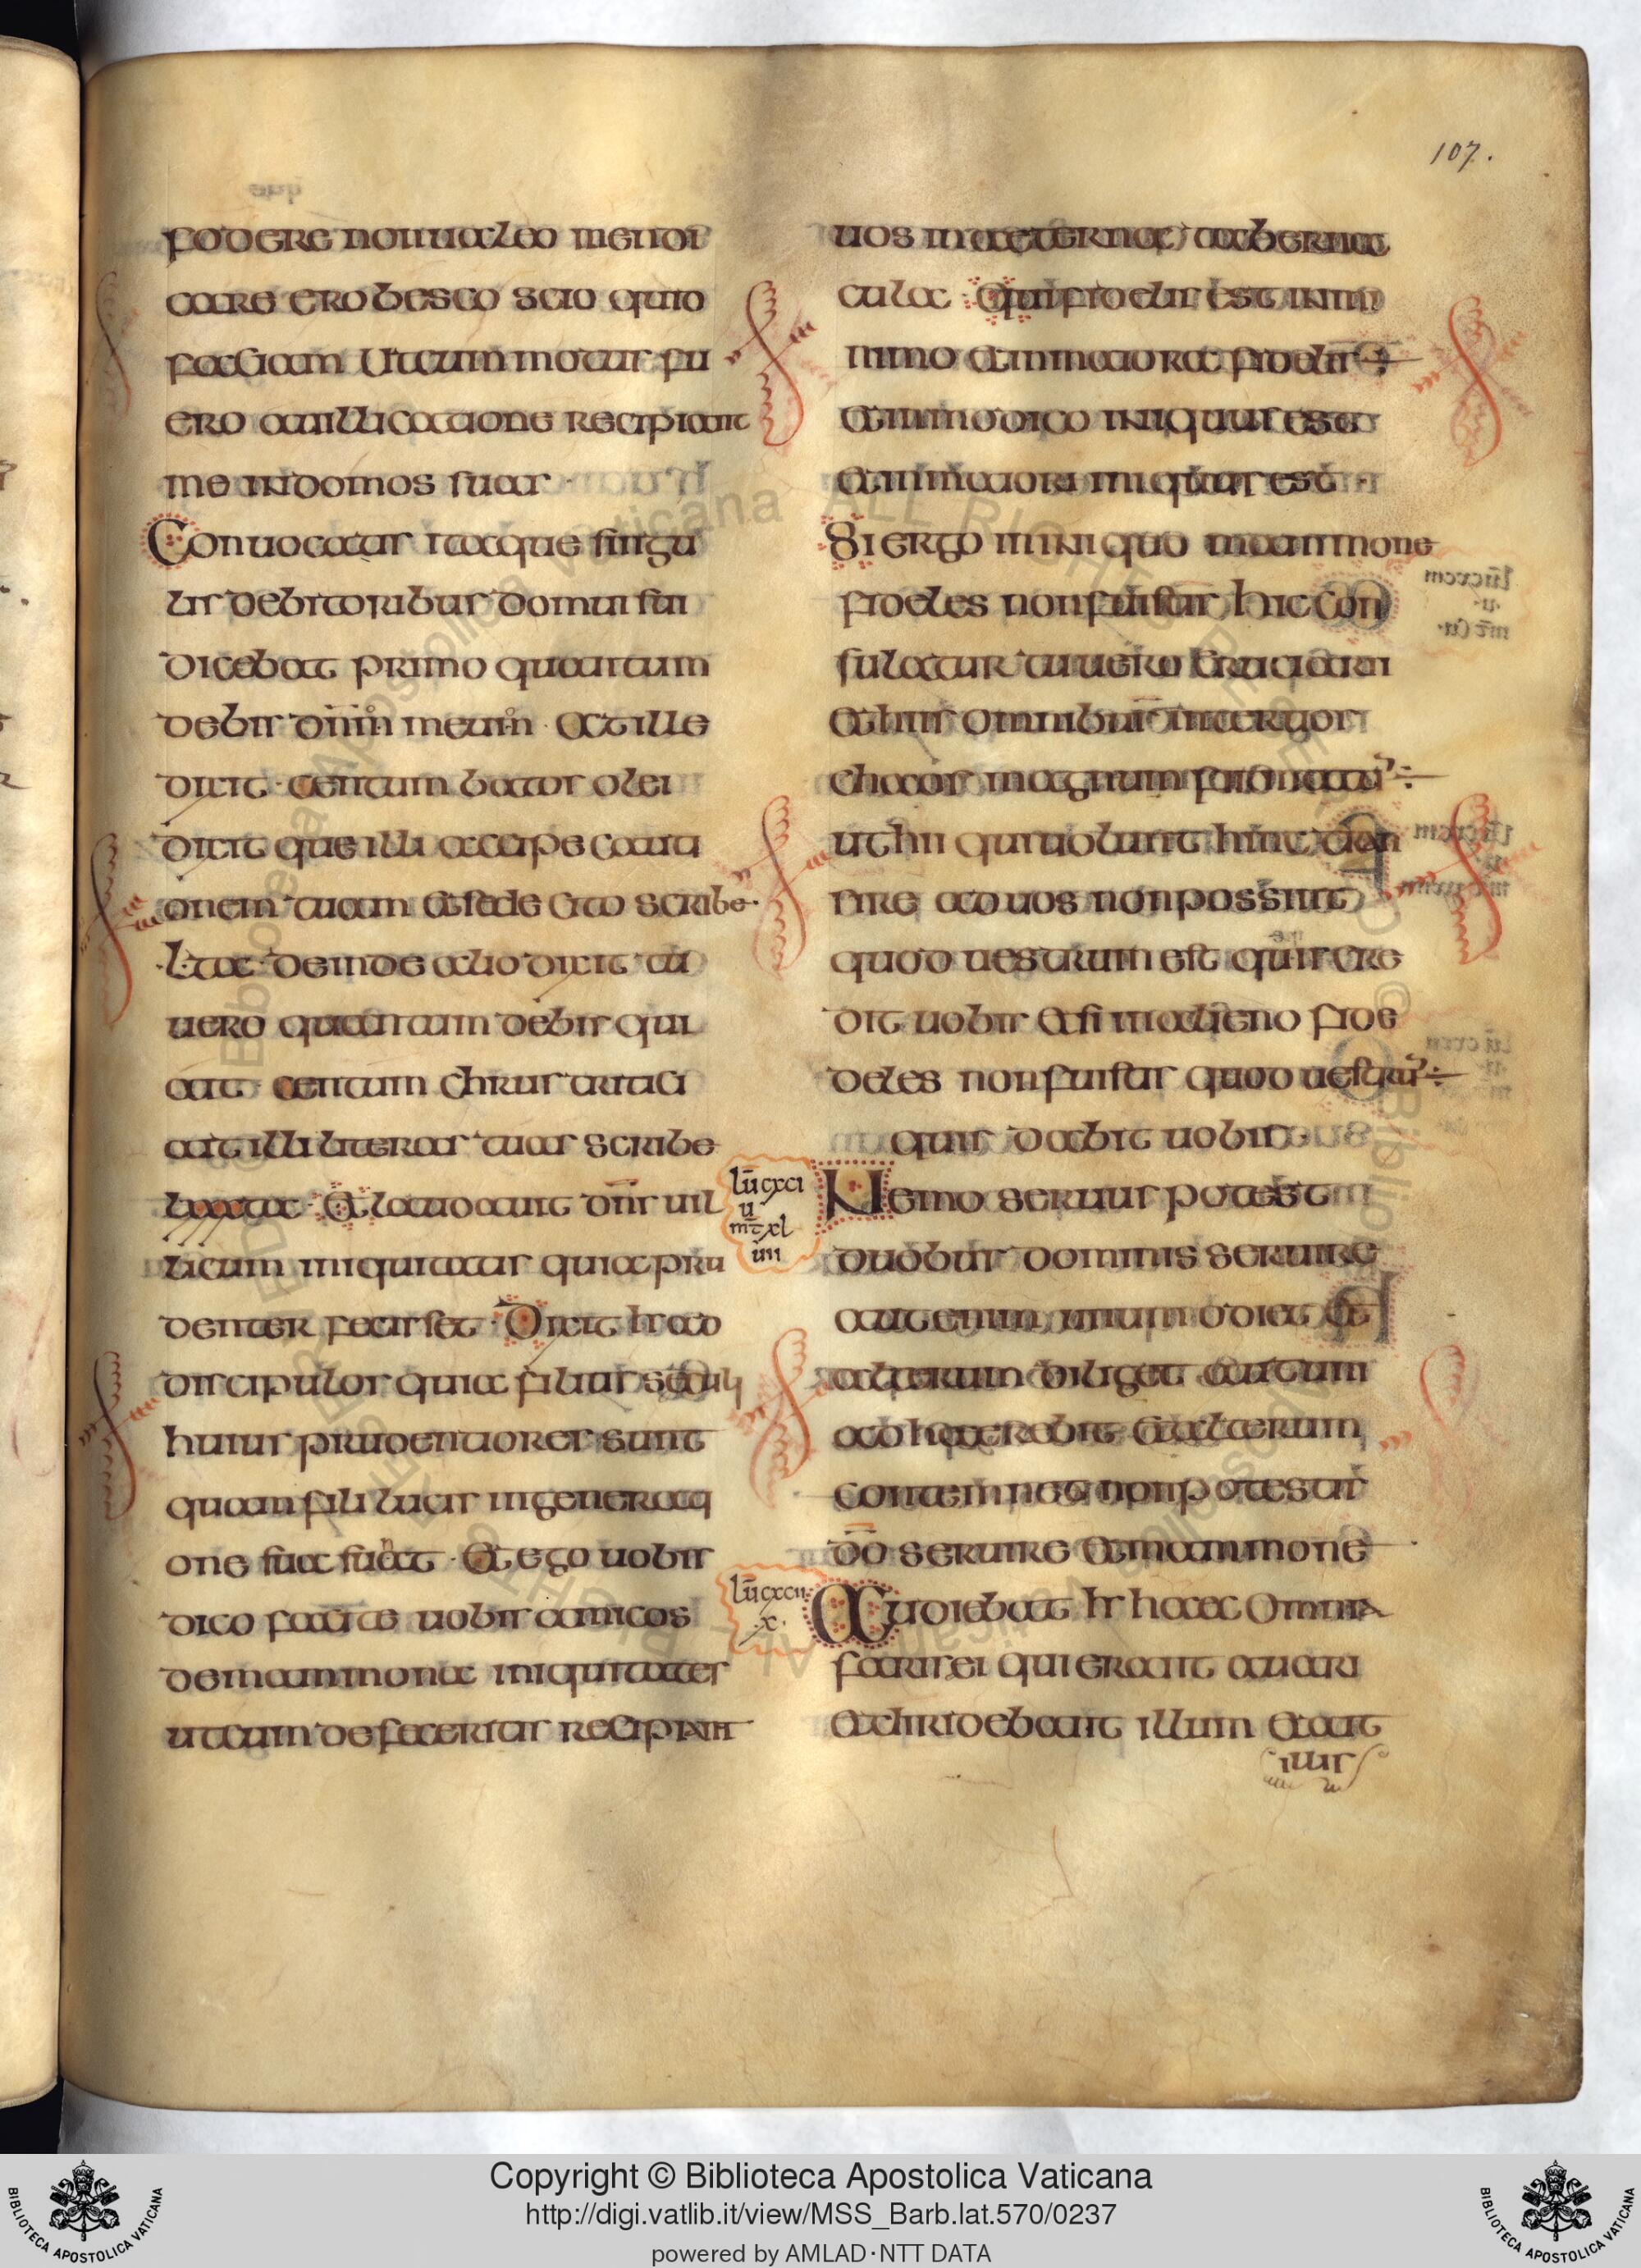 107.
fodere non ualeo mendi
care erobesco scio quid
faciam Ut cum motus fu
ero a uillicatione recipiant
me in domos suas
Conuocatis itaque singu
lis debitoribus domui sui
dicebat primo quantum
debis dn̄m meum · At ille
dixit · centum batos olei
dixit que illi accipe cauti
onem tuam et sede cito scribe ·
· L · ta · deinde alio dixit tu
uero quantum debis qui
ait centum chrus tritici
ait illi literas tuas scribe
lxxxta · Et laudauit dn̄s uil
licum iniquitatis quia pru
denter fecisset · Dixit ihs ad
discipulos quia filius seculi
huius prudentiores sunt
quam fili lucis in generati
one sua sunt · Et ego uobis
dico facite uobis amicos
de mammona iniquitates
ut cum defeceritis recipiant
uos in aeterna taberna
cula · Qui fidelis est in mi
nimo et in maiora fidelis ÷
et in modico iniquus est
et in maiori iniquus est ·
Si ergo in iniquo mammone
fideles non fuistis hic con
sulatur tu uero cruciaris
et his omnibus inter uos
chaos magnum firmatum ÷
ut hii qui uolunt hinc tran
sire ad uos non possint
quod uestrum est quis cre
dit uobis et si in alieno fide
deles non fuistis quod uestrum ÷
quis dabit uobis ·
lū cxci
u
mt̄ xl
iiii
Nemo seruus potest
duobus dominis seruire
aut enim unum odiet et
alterum diliget aut uni
adherebit et alterum
contemnet non potestis
dō seruire et mammone
lū cxcii
x
Audiebat ihs haec omnia
farisei qui erant auari
et chridebant illum et ait
illis
Copyright © Biblioteca Apostolica Vaticana
http://digi.vatlib.it/view/MSS_Barb.lat.570/0237
powered by AMLAD·NTT DATA
BIBLIOTECA APOSTOLICA VATICANA
BIBLIOTECA APOSTOLICA VATICANA